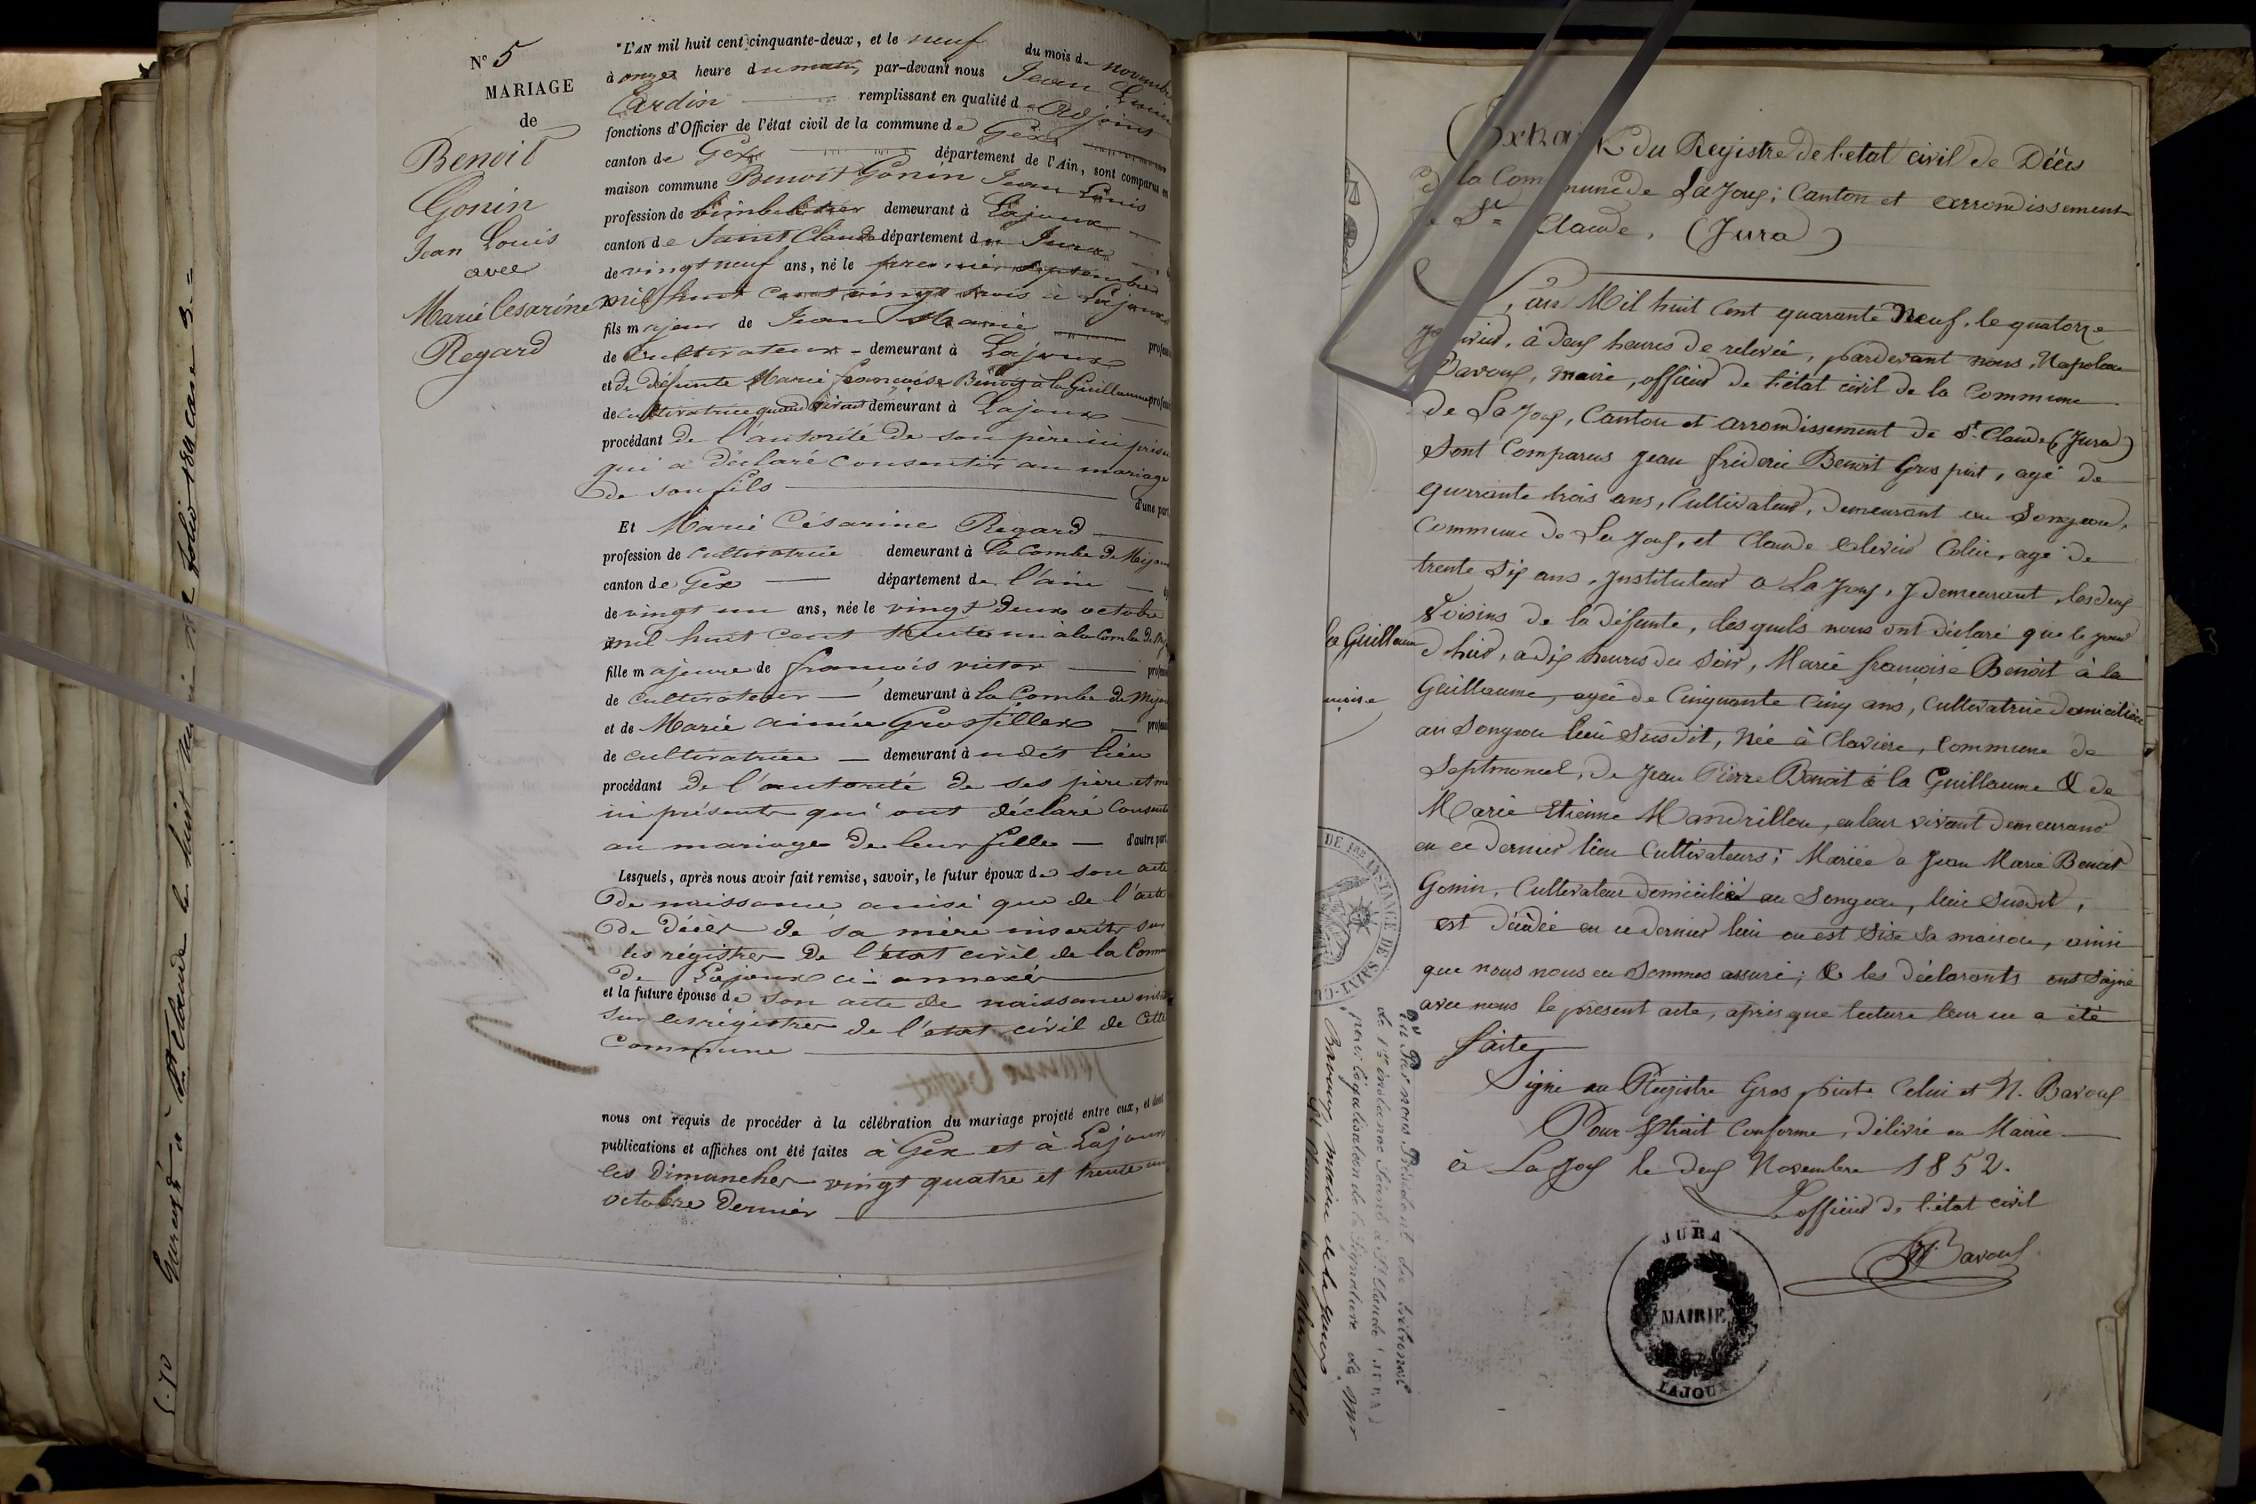 N° 5
MARIAGE
de
Benoit
Gonin
Jean Louis
avec
Marie Césarine
Regard
L'AN mil huit cent cinquante-deux, et le neuf du mois de novembre
à onze heure du matin, par-devant nous Jean Louis
Cardin remplissant en qualité d'Adjoint
fonctions d'Officier de l'état civil de la commune de Gex
canton de Gex département de l'Ain, sont comparus en
maison commune Benoit Gonin Jean Louis
profession de bimbelotier demeurant à Lajoux
canton de Saint Claude département du Jura
de vingt neuf ans, né le premier septembre
mil huit cent vingt trois à Lajoux
fils majeur de Jean Marie profes
de cultivateur demeurant à Lajoux
et de défunte Marie françoise Benoit à la Guillaume profes
de cultivatrice quand vivait demeurant à Lajoux
procédant de l'autorité de son père ici présent
qui a déclaré consentir au mariage
de son fils d'une part,
Et Marie Césarine Regard
profession de cultivatrice demeurant à la Combe de Mijoux
canton de Gex département de l'ain
de vingt un ans, née le vingt deux octobre
mil huit cent trente un à la Combe de Mij
fille majeure de françois victor profes
de cultivateur demeurant à la Combe de Mijoux
et de Marie aimée Grosfillex profes
de cultivatrice demeurant à udit lieu
procédant de l'autorité de ses père et mère
ici présents qui ont déclaré Consentir
au mariage de leur fille d'autre part.
Lesquels, après nous avoir fait remise, savoir, le futur époux de son acte
de naissance ainsi que de l'acte
de décès de sa mère inscrits sur
les régistres de l'état civil de la Commune
de Lajoux ci-annexés
et la future épouse de son acte de naissance inscrit
sur les régistres de l'état civil de cette
Commune
nous ont requis de procéder à la célébration du mariage projeté entre eux, et dont
publications et affiches ont été faites à Gex et à Lajoux
les Dimanches vingt quatre et trente un
octobre dernier
Extrait du Registre de l'etat civil de Décès
de la Commune de La Joux; Canton et arrondissement
de St Claude, (Jura)
L'an Mil huit Cent quarante Neuf, le quatorze
janvier, à deux heures de relevée, pardevant nous, Napoleon
Bavoux, maire, officier de l'état civil de la Commune
de La Joux, Canton et arrondissement de St Claude (Jura)
Sont Comparus Jean fréderic Benoit Gros piret, agé de
quarante trois ans, Cultivateur, demeurant au Songeon,
Commune de La Joux, et Claude Colin, agé de
trente Six ans, Instituteur a La Joux, y demeurant, les deux
Voisins de la défunte, lesquels nous ont déclaré que le jour
d'hier, a dix heures du Soir, Marie françoise Benoit à la
Guillaume, agée de Cinquante Cinq ans, Cultivatrice domiciliée
au Songeon lieu Susdit, Née à Clavière, Commune de
Septmoncel, de Jean Pierre Benoit à la Guillaume & de
Marie Etienne Mandrillon, en leur vivant demeurant
en ce dernier lieu Cultivateurs; Mariée a Jean Marie Benoit
Gonin, Cultivateur domicilié au Songeon, lieu Susdit,
est décédée en ce dernier lieu ou est Sise Sa maison, ainsi
que nous nous en Sommes assuré; & les déclarants ont Signé
avec nous le present acte, après que lecture leur en a été
faite
Signé au Registre Gros piret Colin et N. Bavoux
Pour Extrait Conforme, délivré en Mairie
à La Joux le deux Novembre 1852.
L'officier de l'état civil
N Bavoux
JURA
MAIRIE
LAJOUX
la Guillaume
DE 1ère INSTANCE DE SAINT-CL
Vu Par nous Président du tribunal
de 1re instance Séant à St Claude (JURA)
pour légalisation de la Signature de Mr
Bavoux, maire de la Joux